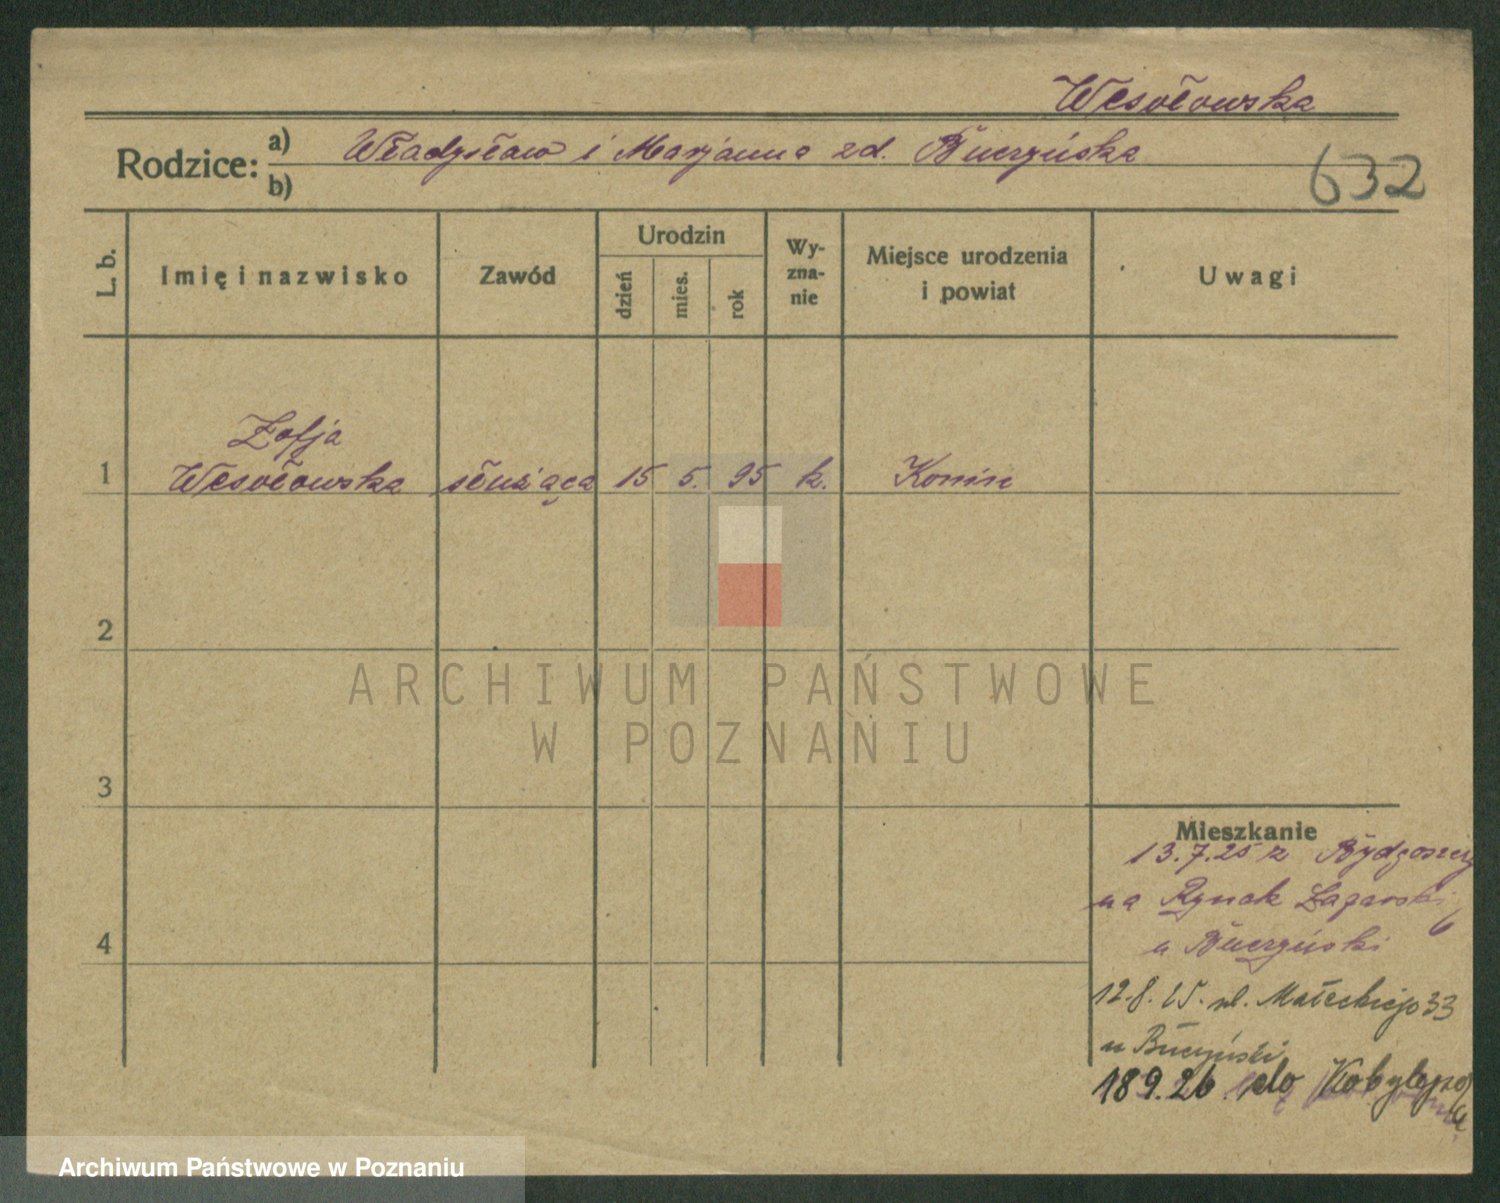 Wesołowska
Rodzice: a) Władysław i Marjanna zd. Buczyńska
b)
632
L. b.
Imię i nazwisko
Zawód
Urodzin
dzień
mies.
rok
Wy-
zna-
nie
Miejsce urodzenia
i powiat
Uwagi
Zofja
1 Wesołowska służąca 15 5. 95 k. Konin
2
ARCHIWUM PAŃSTWOWE
W POZNANIU
3
Mieszkanie
13.7.25 z Bydgoszczy
na Rynek Łazarski 6
u Buczyński
4
12.8.25. ul. Małeckiego 33
u Buczyński
18 9.26 do
Archiwum Państwowe w Poznaniu